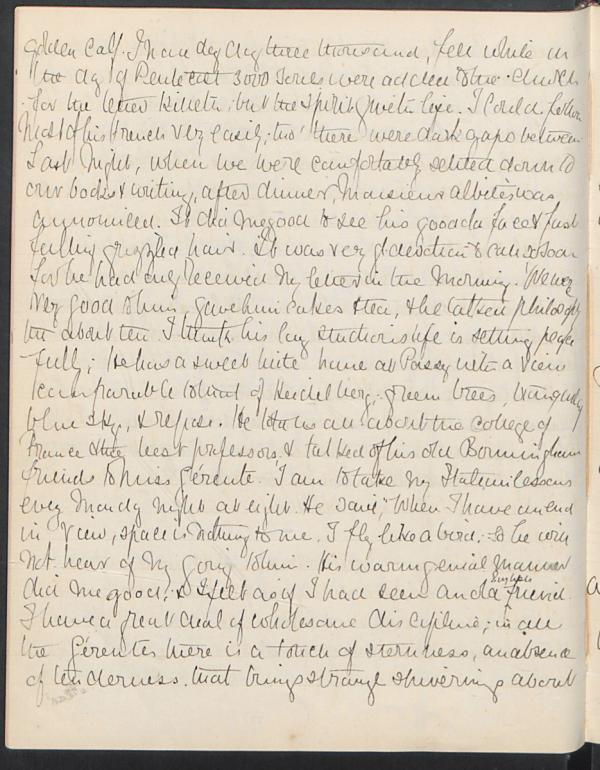 golden calf. In one day three thousand, fell while on
the day of Pentecost 3000 souls were added to the Church
for the letter killeth; but the spirit giveth life. I could follow
most of his French very easily, tho' there were dark gaps between
Last night, when we were comfortably settled down to
our books & writing, after dinner, Monsieur Albites was
announced. It did me good to see his good old face & fast
falling grizzled hair. It was very gd devotion to call so soon
for he had only received my letter in the morning. We were
very good to him, gave him cakes & tea, & he talked philosophy
till about ten. I think his long studious life is setting peace
fully; he has a sweet little home at Passy with a view
comparable to that of Heidelberg, green trees,
blue sky, & repose. He told us all about the College of
France & the best professors, & talked of his old Birmingham
friends to Miss Gérente. I am to take my Italian lessons
every Monday night at eight. He said, "When I have an end
in view, space is nothing to me. I fly like a bird." So he will
not hear of my going to him. His warm genial manner
did me good, & I felt as if I had seen an old English friend.
I have a great deal of wholesome discipline; in all
the Gérentes there is a touch of sternness, an absence
of tenderness, that brings strange shiverings about